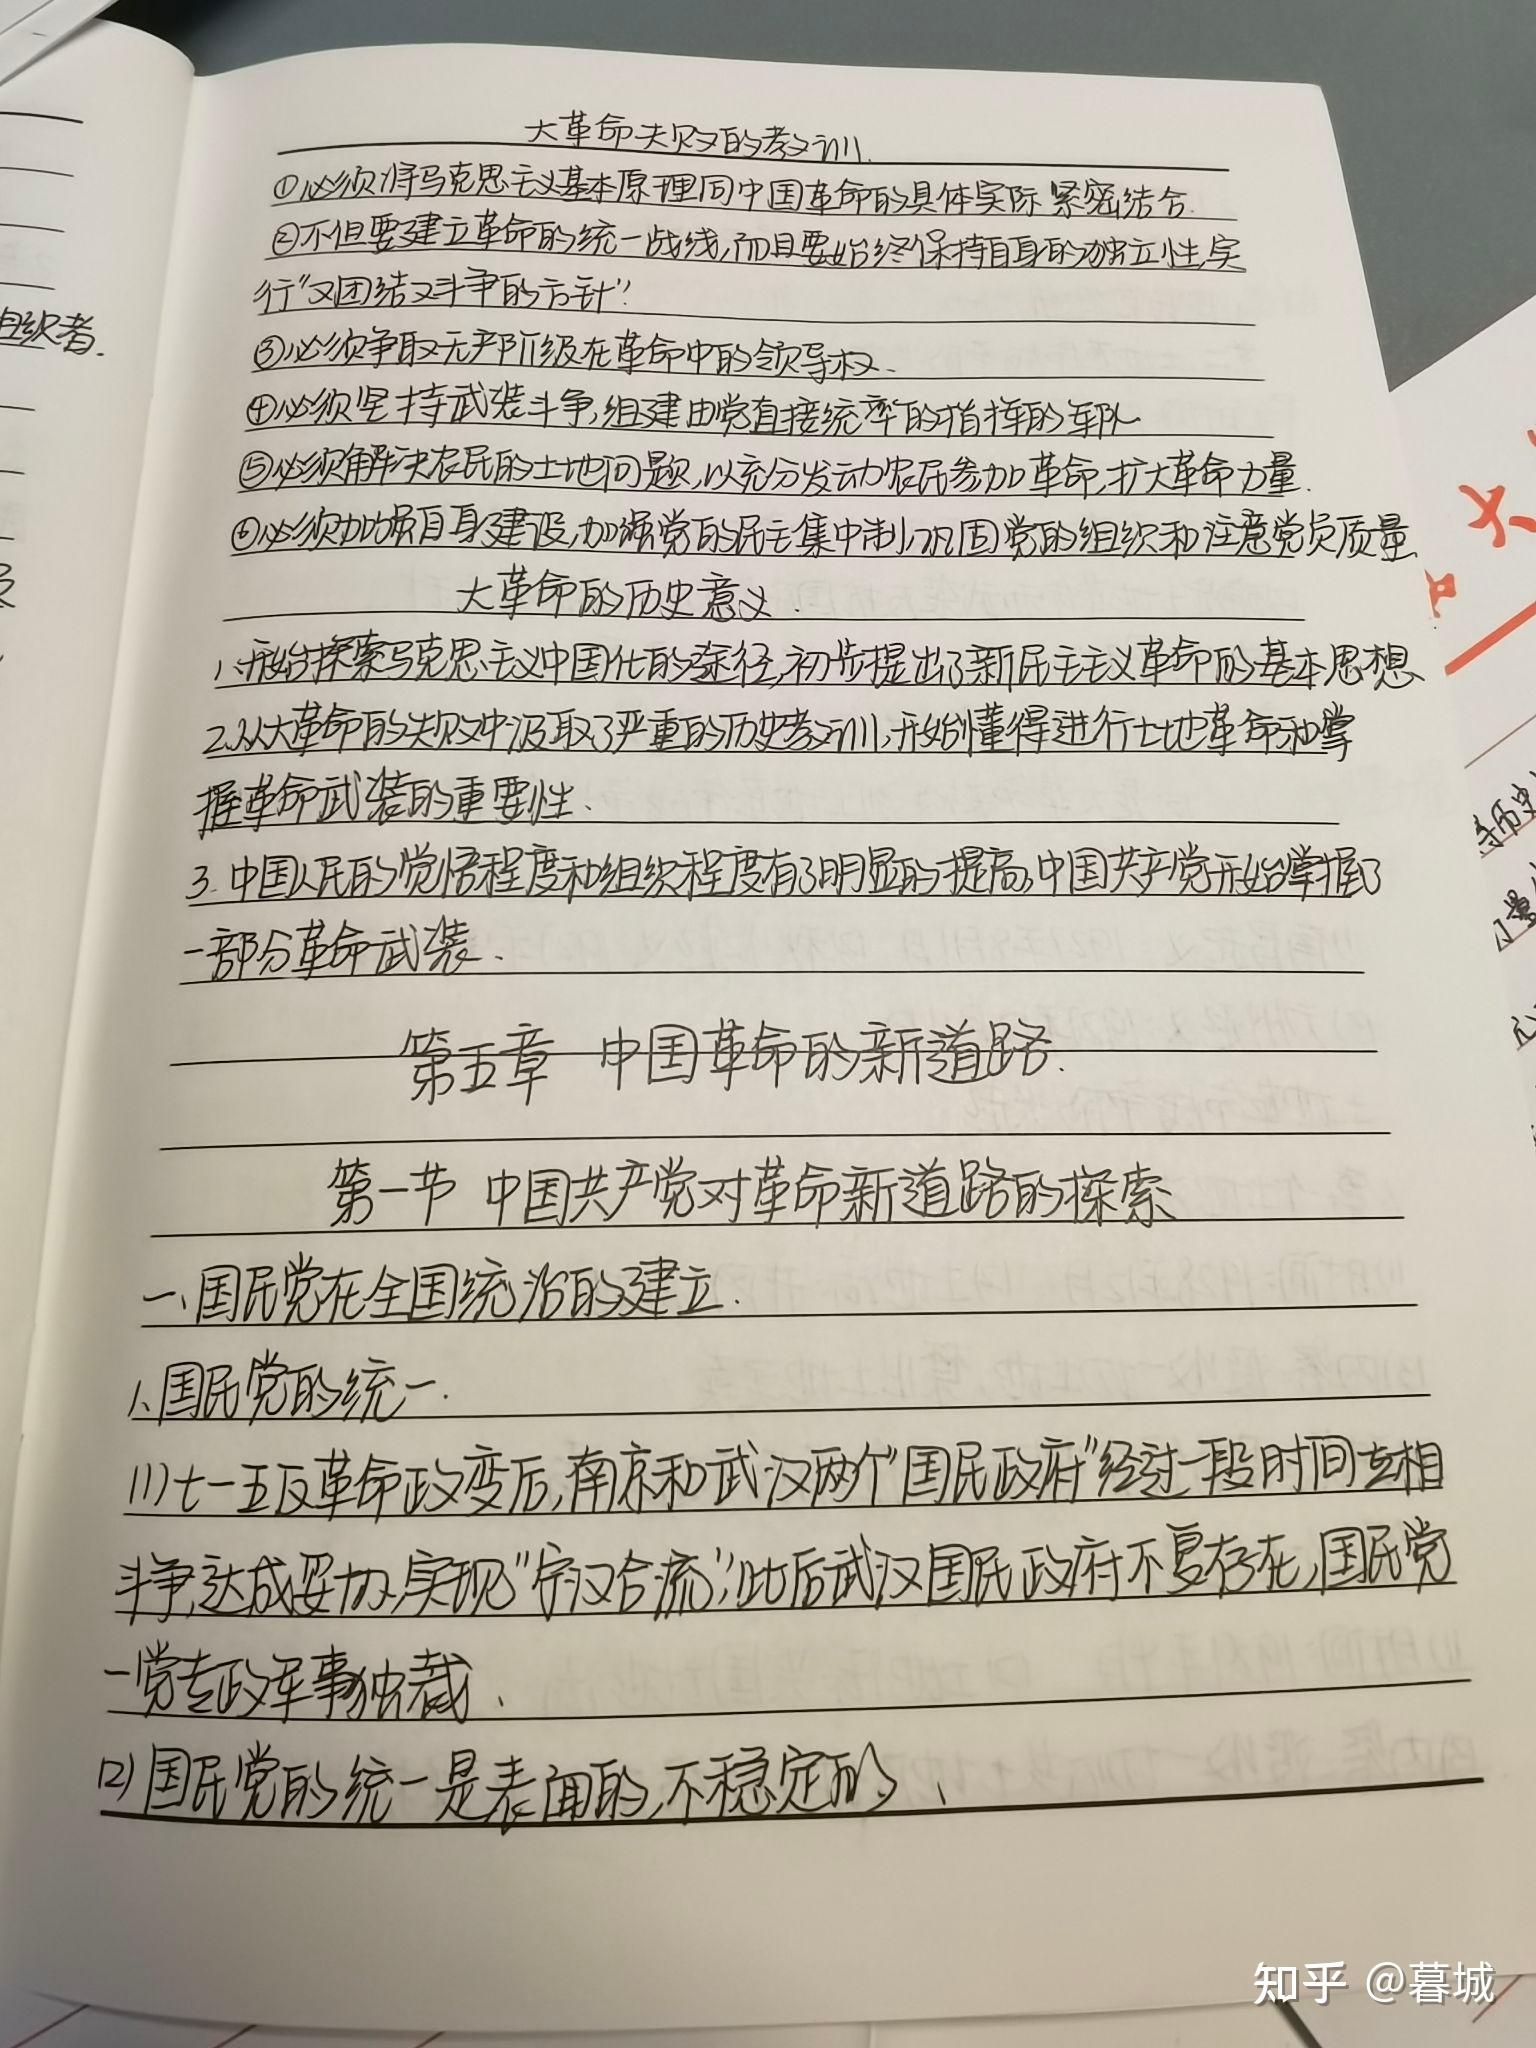 大革命失败的教训.
①必须将马克思主义基本原理同中国革命的具体实际紧密结合.
②不但要建立革命的统一战线,而且要始终保持自身的独立性,实
行"又团结又斗争的方针".
③必须争取无产阶级在革命中的领导权.
④必须坚持武装斗争,组建由党直接统率的指挥的军队
⑤必须解决农民的土地问题,以充分发动农民参加革命,扩大革命力量.
⑥必须加强自身建设,加强党的民主集中制,巩固党的组织和注意党员质量
大革命的历史意义.
1、开始探索马克思主义中国化的途径,初步提出了新民主主义革命的基本思想
2、从大革命的失败中汲取了严重的历史教训,开始懂得进行土地革命和掌
握革命武装的重要性.
3.中国人民的觉悟程度和组织程度有了明显的提高,中国共产党开始掌握了
一部分革命武装.
第五章 中国革命的新道路.
第一节 中国共产党对革命新道路的探索
一、国民党在全国统治的建立.
1、国民党的统一.
(1)七一五反革命政变后,南京和武汉两个"国民政府"经过一段时间互相
斗争,达成妥协,实现"宁汉合流",此后武汉国民政府不复存在,国民党
一党专政军事独裁.
(2)国民党的统一是表面的,不稳定的、
组织者.
等历史
知乎 @暮城